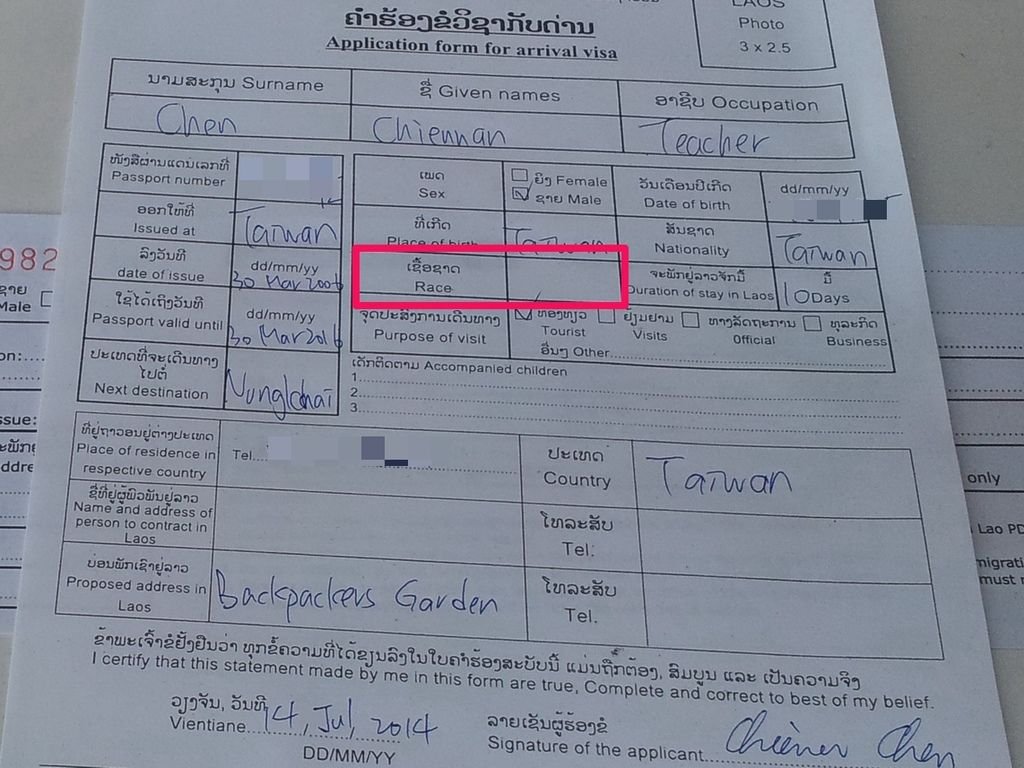 LAOS
Photo
3 x 2.5
ຄຳຮ້ອງຂໍວິຊາກັບດ່ານ
Application form for arrival visa
ນາມສະກຸນ Surname
ຊື່ Given names
ອາຊີບ Occupation
Chen
Chiennan
Teacher
ໜັງສືຜ່ານແດນເລກທີ່
Passport number
ເພດ
Sex
ຍິງ Female
ຊາຍ Male
ວັນເດືອນປີເກີດ
Date of birth
dd/mm/yy
ອອກໃຫ້ທີ່
Issued at
Taiwan
ທີ່ເກີດ
Place of birth
Taiwan
ສັນຊາດ
Nationality
Taiwan
ລົງວັນທີ
date of issue
dd/mm/yy
30 Mar 2006
ເຊື້ອຊາດ
Race
ຈະພັກຢູ່ລາວຈັກມື້
Duration of stay in Laos
ມື້
10 Days
ໃຊ້ໄດ້ເຖິງວັນທີ
Passport valid until
dd/mm/yy
30 Mar 2016
ຈຸດປະສົງການເດີນທາງ
Purpose of visit
ທ່ອງທ່ຽວ
Tourist
ຢ້ຽມຢາມ
Visits
ທາງລັດຖະການ
Official
ທຸລະກິດ
Business
ອື່ນໆ Other
ປະເທດທີ່ຈະເດີນທາງ
ໄປຕໍ່
Next destination
ເດັກຕິດຕາມ Accompanied children
1
2
3
ທີ່ຢູ່ຖາວອນຢູ່ຕ່າງປະເທດ
Place of residence in
respective country
Tel
ປະເທດ
Country
Taiwan
ຊື່ທີ່ຢູ່ຜູ້ພົວພັນຢູ່ລາວ
Name and address of
person to contract in
Laos
ໂທລະສັບ
Tel:
ບ່ອນພັກເຊົາຢູ່ລາວ
Proposed address in
Laos
Backpackers Garden
ໂທລະສັບ
Tel.
ຂ້າພະເຈົ້າຂໍຢັ້ງຢືນວ່າ ທຸກຂໍ້ຄວາມທີ່ໄດ້ຂຽນລົງໃນໃບຄຳຮ້ອງສະບັບນີ້ ແມ່ນຖືກຕ້ອງ, ສົມບູນ ແລະ ເປັນຄວາມຈິງ
I certify that this statement made by me in this form are true, Complete and correct to best of my belief.
ວຽງຈັນ, ວັນທີ
Vientiane 14, Jul, 2014
DD/MM/YY
ລາຍເຊັນຜູ້ຮ້ອງຂໍ
Signature of the applicant Chen
982
ຊາຍ
Male
on:
ssue:
only
Lao PD
migrati
must